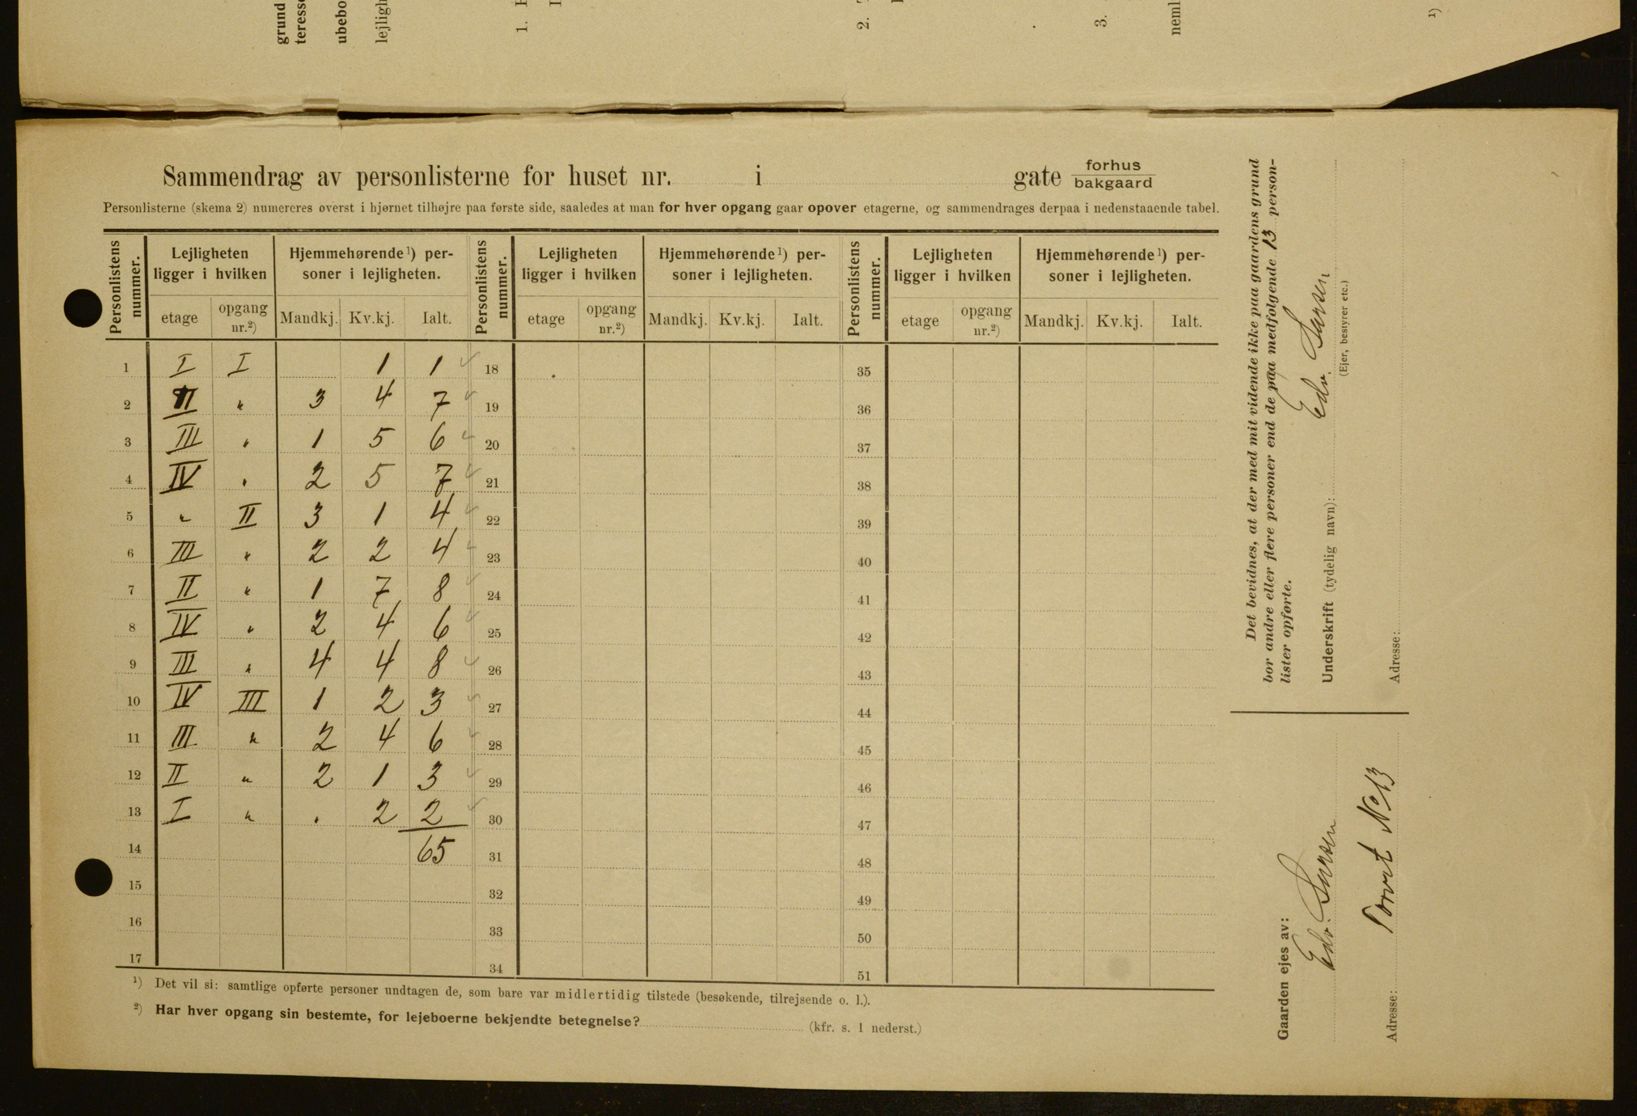 grund
teresse
ubebo
lejligh
1.
2.
3.
neml
¹)
Sammendrag av personlisterne for huset nr. i gate forhus
bakgaard
Personlisterne (skema 2) numereres øverst i hjørnet tilhøjre paa første side, saaledes at man for hver opgang gaar opover etagerne, og sammendrages derpaa i nedenstaaende tabel.
Personlistens nummer. Lejligheten ligger i hvilken Hjemmehørende¹) personer i lejligheten. Personlistens nummer. Lejligheten ligger i hvilken Hjemmehørende¹) personer i lejligheten. Personlistens nummer. Lejligheten ligger i hvilken Hjemmehørende¹) personer i lejligheten.
etage opgang nr.²) Mandkj. Kv.kj. Ialt. etage opgang nr.²) Mandkj. Kv.kj. Ialt. etage opgang nr.²) Mandkj. Kv.kj. Ialt.
1 I I 1 1 18 35
2 II " 3 4 7 19 36
3 III " 1 5 6 20 37
4 IV " 2 5 7 21 38
5 " II 3 1 4 22 39
6 III " 2 2 4 23 40
7 II " 1 7 8 24 41
8 IV " 2 4 6 25 42
9 III " 4 4 8 26 43
10 IV III 1 2 3 27 44
11 III " 2 4 6 28 45
12 II " 2 1 3 29 46
13 I " . 2 2 30 47
14 65 31 48
15 32 49
16 33 50
17 34 51
¹) Det vil si: samtlige opførte personer undtagen de, som bare var midlertidig tilstede (besøkende, tilrejsende o. l.).
²) Har hver opgang sin bestemte, for lejeboerne bekjendte betegnelse? (kfr. s. 1 nederst.)
Det bevidnes, at der med mit vidende ikke paa gaardens grund
bor andre eller flere personer end de paa medfølgende 13 person-
lister opførte.
Underskrift (tydelig navn): Edv. Larsen
(Ejer, bestyrer etc.)
Adresse:
Gaarden ejes av: Edv. Larsen
Adresse: Torvet No 13